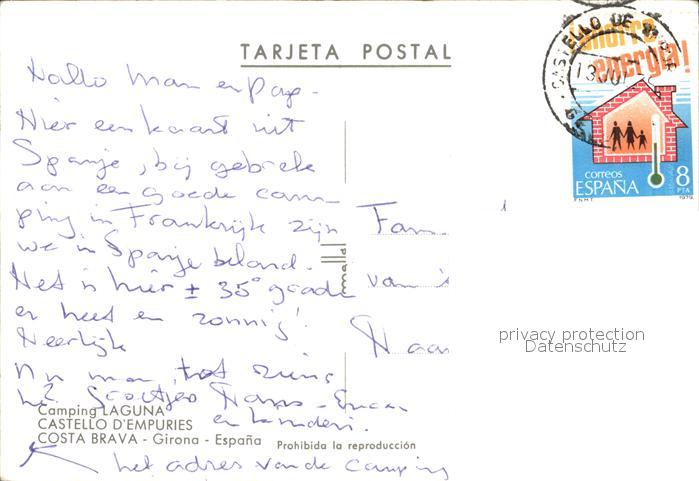 TARJETA POSTAL
CASTELLO DE
13 JUL
ahorre
energia!
correos
ESPAÑA
8
PTA
F.N.M.T.
1979
Hallo Mam en Pap.
Hier een kaart uit
Spanje, bij gebrek
aan een goede cam-
ping in Frankrijk zijn
we in Spanje beland.
Het is hier ± 35° graden
en heet en zonnig!
Heerlijk
Nu mam, tot ziens
Hans
en kinderen.
Fam.
van 't
Haar
privacy protection
Datenschutz
Camping LAGUNA
CASTELLO D'EMPURIES
COSTA BRAVA - Girona - España Prohibida la reproducción
het adres van de camping